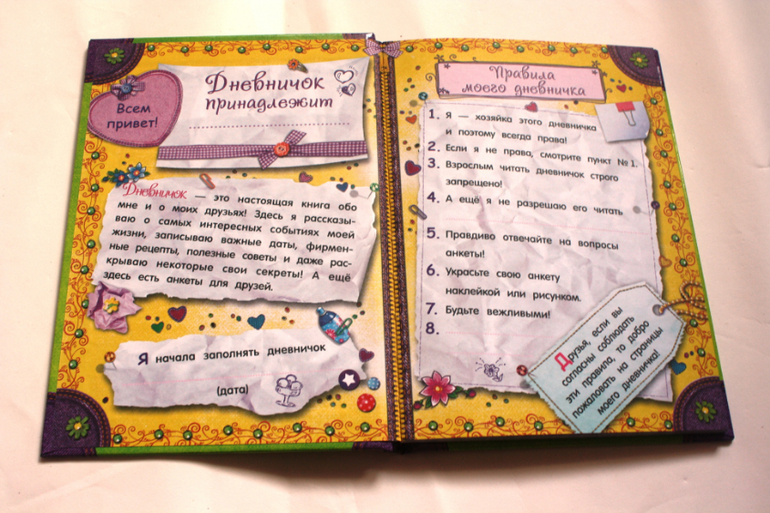 Всем
привет!
Дневничок
принадлежит
Дневничок — это настоящая книга обо
мне и о моих друзьях! Здесь я рассказы-
ваю о самых интересных событиях моей
жизни, записываю важные даты, фирмен-
ные рецепты, полезные советы и даже рас-
крываю некоторые свои секреты! А ещё
здесь есть анкеты для друзей.
Я начала заполнять дневничок
(дата)
Правила
моего дневничка
1. Я — хозяйка этого дневничка
и поэтому всегда права!
2. Если я не права, смотрите пункт №1.
3. Взрослым читать дневничок строго
запрещено!
4. А ещё я не разрешаю его читать
5. Правдиво отвечайте на вопросы
анкеты!
6. Украсьте свою анкету
наклейкой или рисунком.
7. Будьте вежливыми!
8.
Друзья, если вы
согласны соблюдать
эти правила, то добро
пожаловать на страницы
моего дневничка!